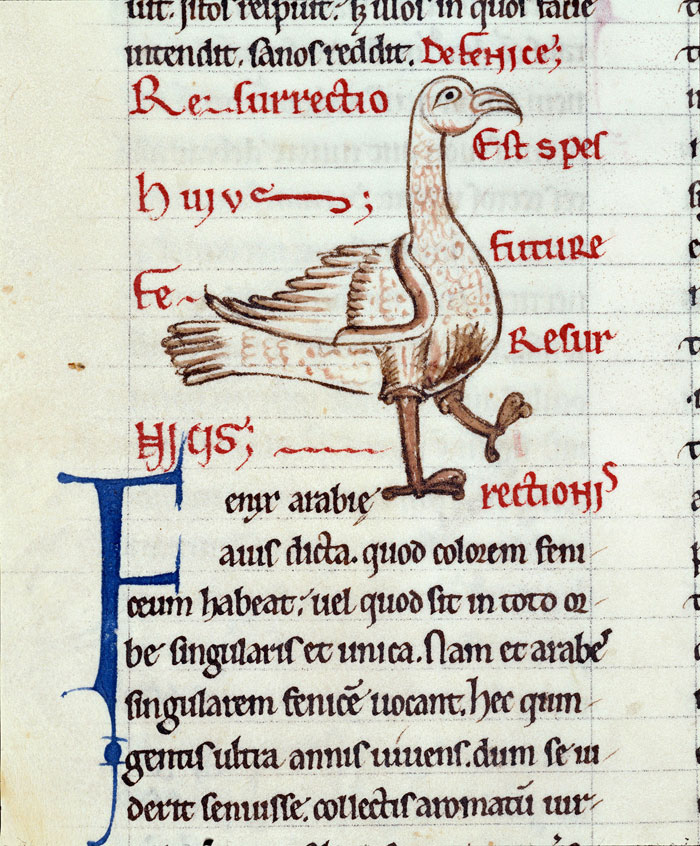 intendit. sanos reddit. De fenice;
Resurrectio
Est spes
huius;
future
fe
Resur
nicis;
rectionis
Fenix arabię
auis dicta. quod colorem feni
ceum habeat. uel quod sit in toto or
be singularis et unica. Nam et arabeˢ
singularem fenicē uocant. hec quin
gentis ultra annis uiuens. dum se ui
derit senuisse. collectis aromatū uir